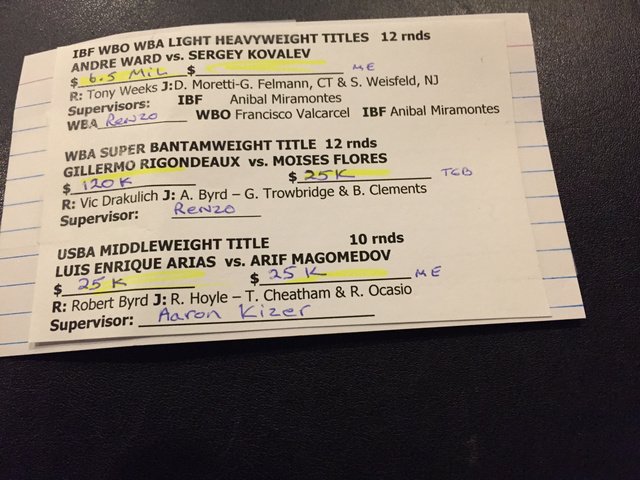 IBF WBO WBA LIGHT HEAVYWEIGHT TITLES 12 rnds
ANDRE WARD vs. SERGEY KOVALEV
$ 6.5 MIL $ ME
R: Tony Weeks J:D. Moretti-G. Felmann, CT & S. Weisfeld, NJ
Supervisors: IBF Anibal Miramontes
WBA Renzo WBO Francisco Valcarcel IBF Anibal Miramontes
WBA SUPER BANTAMWEIGHT TITLE 12 rnds
GILLERMO RIGONDEAUX vs. MOISES FLORES
$ 120K $ 25K TGB
R: Vic Drakulich J: A. Byrd – G. Trowbridge & B. Clements
Supervisor: Renzo
USBA MIDDLEWEIGHT TITLE 10 rnds
LUIS ENRIQUE ARIAS vs. ARIF MAGOMEDOV
$ 25 K $ 25 K ME
R: Robert Byrd J: R. Hoyle – T. Cheatham & R. Ocasio
Supervisor: Aaron Kizer